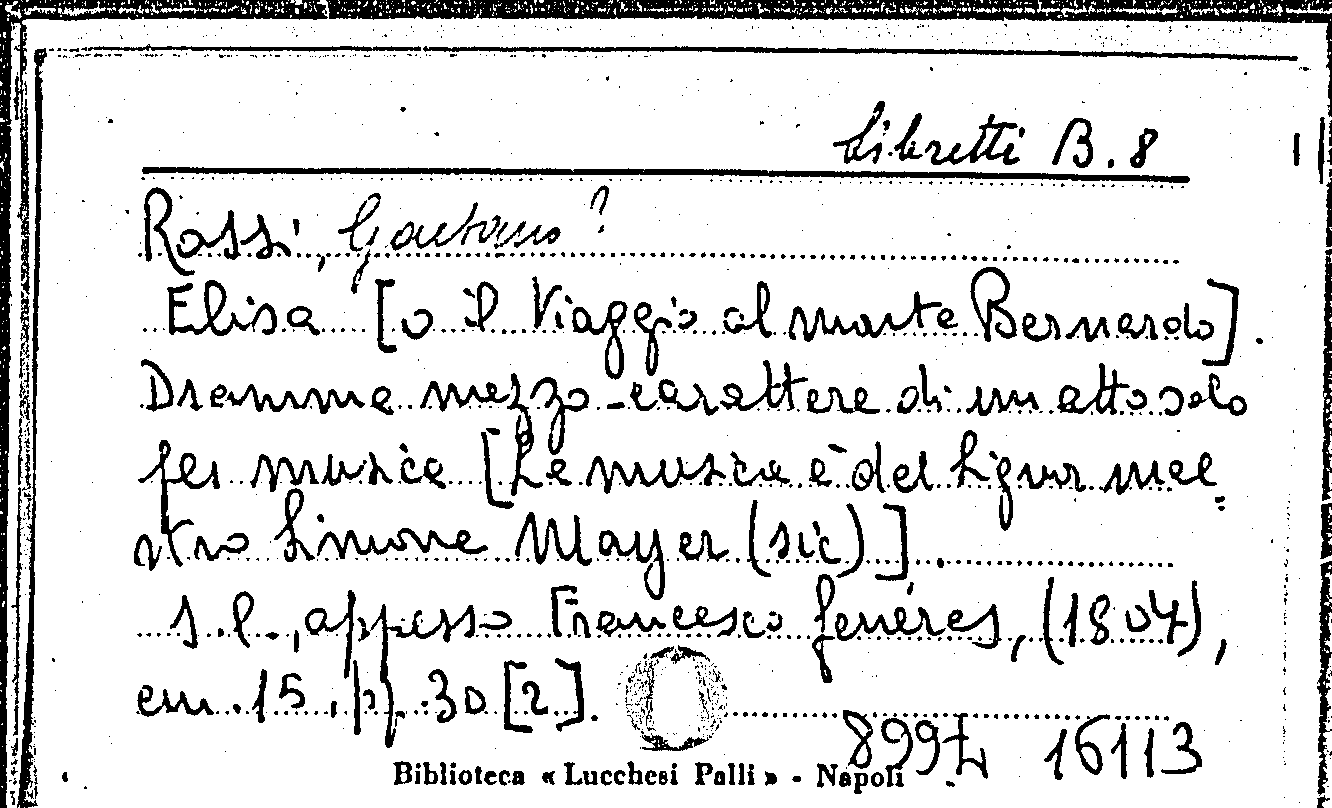 Libretti B. 8
Rossi, Gaetano?
Elisa [o il Viaggio al monte Bernardo].
Dramma mezzo-carattere di un atto solo
per musica [La musica è del Signor mae=
stro Simone Mayer (sic)].
s.l., appresso Francesco Genéres, (1804),
cm. 15, pp. 30 [2].
16113
Biblioteca « Lucchesi Palli » - Napoli